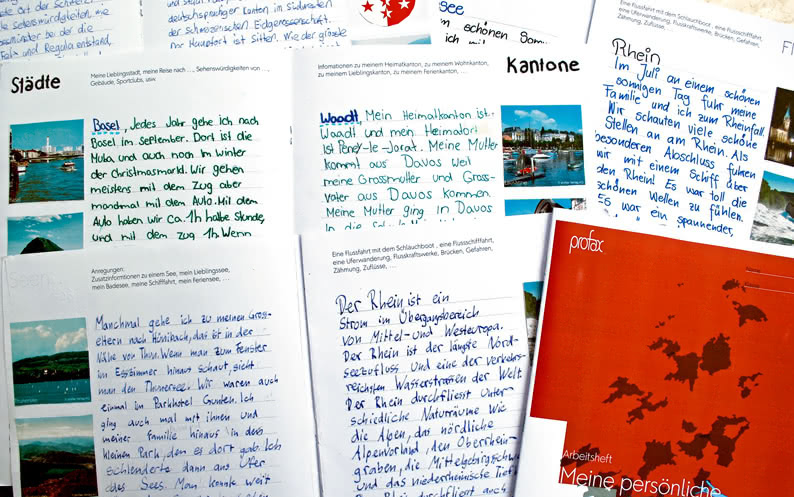 Ort der Schweiz.
deutschsprachiger Kanton im Südwesten
der Schweizerischen Eidgenossenschaft.
Der Hauptort ist Sitten. Wie der grösste
see
schönen Som
ich mit
Städte
Meine Lieblingsstadt, meine Reise nach ..., Sehenswürdigkeiten von ...,
Gebäude, Sportclubs, usw.
Basel, Jedes Jahr gehe ich nach
Basel im September. Dort ist die
Muba und auch noch im Winter
der Christmasmarkt. Wir gehen
meistens mit dem Zug aber
manchmal mit dem Auto. Mit dem
Auto haben wir ca. 1h halbe Stunde,
und mit dem Zug 1h. Wenn
Infomationen zu meinem Heimatkanton, zu meinem Wohnkanton,
zu meinem Lieblingskanton, zu meinem Ferienkanton, ...
Kantone
Waadt, Mein Heimatkanton ist
Waadt und mein Heimatort
ist Peney-le-Jorat. Meine Mutter
kommt aus Davos weil
meine Grossmutter und Gross-
vater aus Davos kommen.
Meine Mutter ging in Davos
in die
Eine Flussfahrt mit dem Schlauchboot, eine Flussschifffahrt,
eine Uferwanderung, Flusskraftwerke, Brücken, Gefahren,
Zähmung, Zuflüsse, ...
Fl
Rhein
Im Juli an einem schönen
sonnigen Tag fuhr meine
Familie und ich zum Rheinfall.
Wir schauten viele schöne
Stellen an am Rhein. Als
besonderen Abschluss fuhren
wir mit einem Schiff über
den Rhein! Es war toll die
schönen Wellen zu fühlen.
Es war ein spannender,
Anregungen:
Zusatzinformtionen zu einem See, mein Lieblingssee,
mein Badesee, meine Schifffahrt, mein Feriensee, ...
Manchmal gehe ich zu meinen Gross-
eltern nach Hünibach, das ist in der
Nähe von Thun. Wenn man zum Fenster
im Esszimmer hinaus schaut, sieht
man den Thunersee. Wir waren auch
einmal im Parkhotel Gunten. Ich
ging auch mal mit ihnen und
meiner Familie hinaus in den
kleinen Park, den es dort gab. Ich
schlenderte dann ans Ufer
des Sees. Man konnte weit
Eine Flussfahrt mit dem Schlauchboot, eine Flussschifffahrt,
eine Uferwanderung, Flusskraftwerke, Brücken, Gefahren,
Zähmung, Zuflüsse, ...
Der Rhein ist ein
Strom im Übergangsbereich
von Mittel- und Westeuropa.
Der Rhein ist der längste Nord-
seezufluss und eine der verkehrs-
reichsten Wasserstrassen der Welt.
Der Rhein durchfliesst unter-
schiedliche Naturräume wie
die Alpen, das nördliche
Alpenvorland, den Oberrhein-
graben, die Mittelgebirgschw
und das niederrheinische Tiefl
Der Rhein durchfliesst auch
profax
Arbeitsheft
Meine persönliche